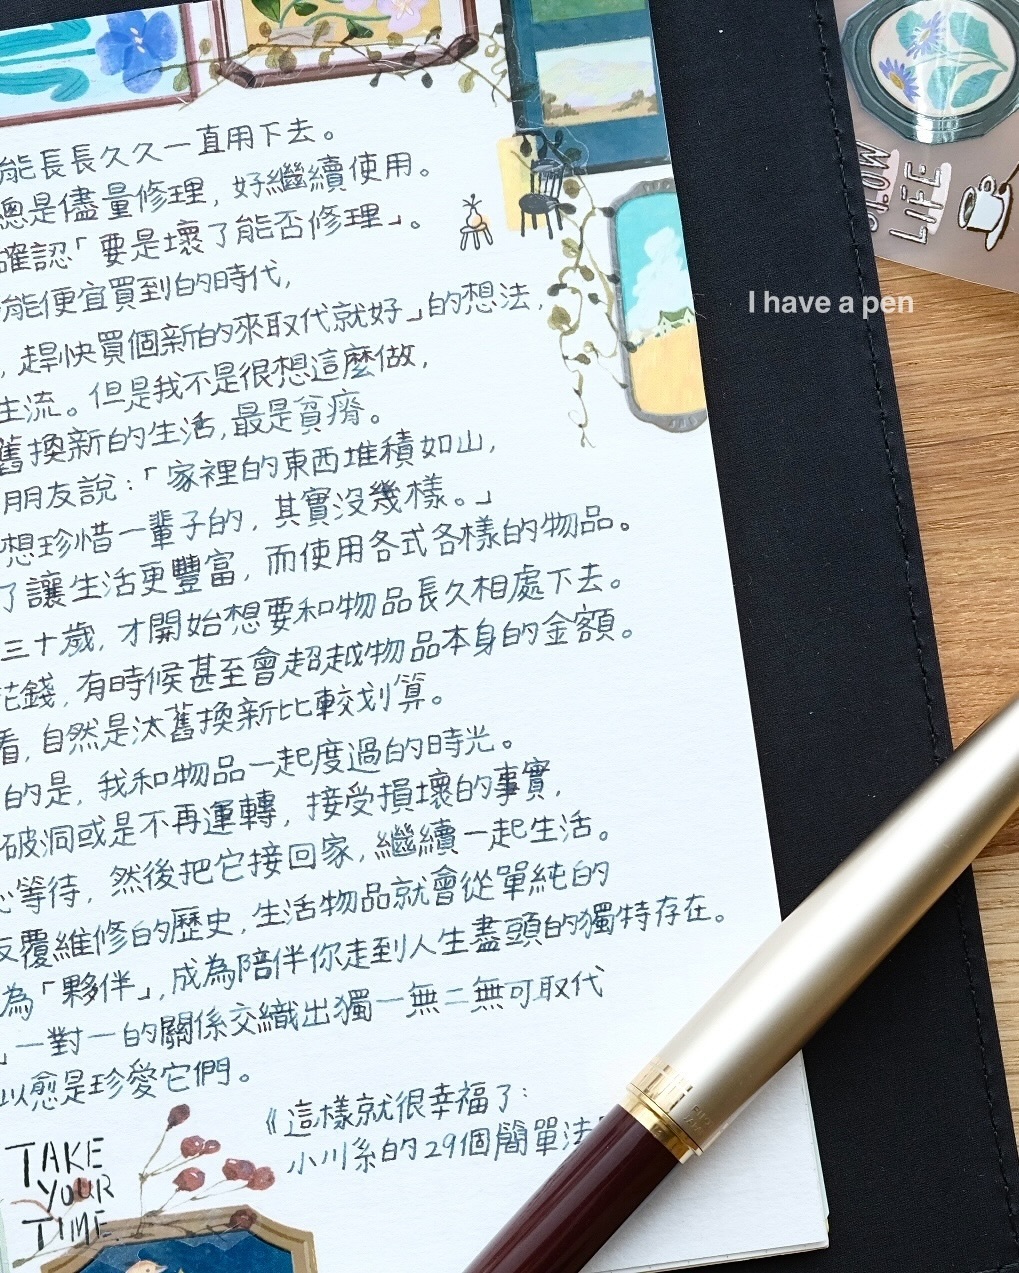 能長長久久一直用下去。
總是儘量修理，好繼續使用。
確認「要是壞了能否修理」。
能便宜買到的時代，
，趕快買個新的來取代就好」的想法，
生流。但是我不是很想這麼做，
舊換新的生活，最是貧瘠。
朋友說：「家裡的東西堆積如山，
想珍惜一輩子的，其實沒幾樣。」
了讓生活更豐富，而使用各式各樣的物品。
三十歲，才開始想要和物品長久相處下去。
花錢，有時候甚至會超越物品本身的金額。
看，自然是汰舊換新比較划算。
的是，我和物品一起度過的時光。
破洞或是不再運轉，接受損壞的事實，
心等待，然後把它接回家，繼續一起生活。
反覆維修的歷史，生活物品就會從單純的
為「夥伴」，成為陪伴你走到人生盡頭的獨特存在。
，一對一的關係交織出獨一無二無可取代
以愈是珍愛它們。
《這樣就很幸福了：
小川糸的29個簡單法
TAKE
YOUR
TIME
SLOW
LIFE
I have a pen